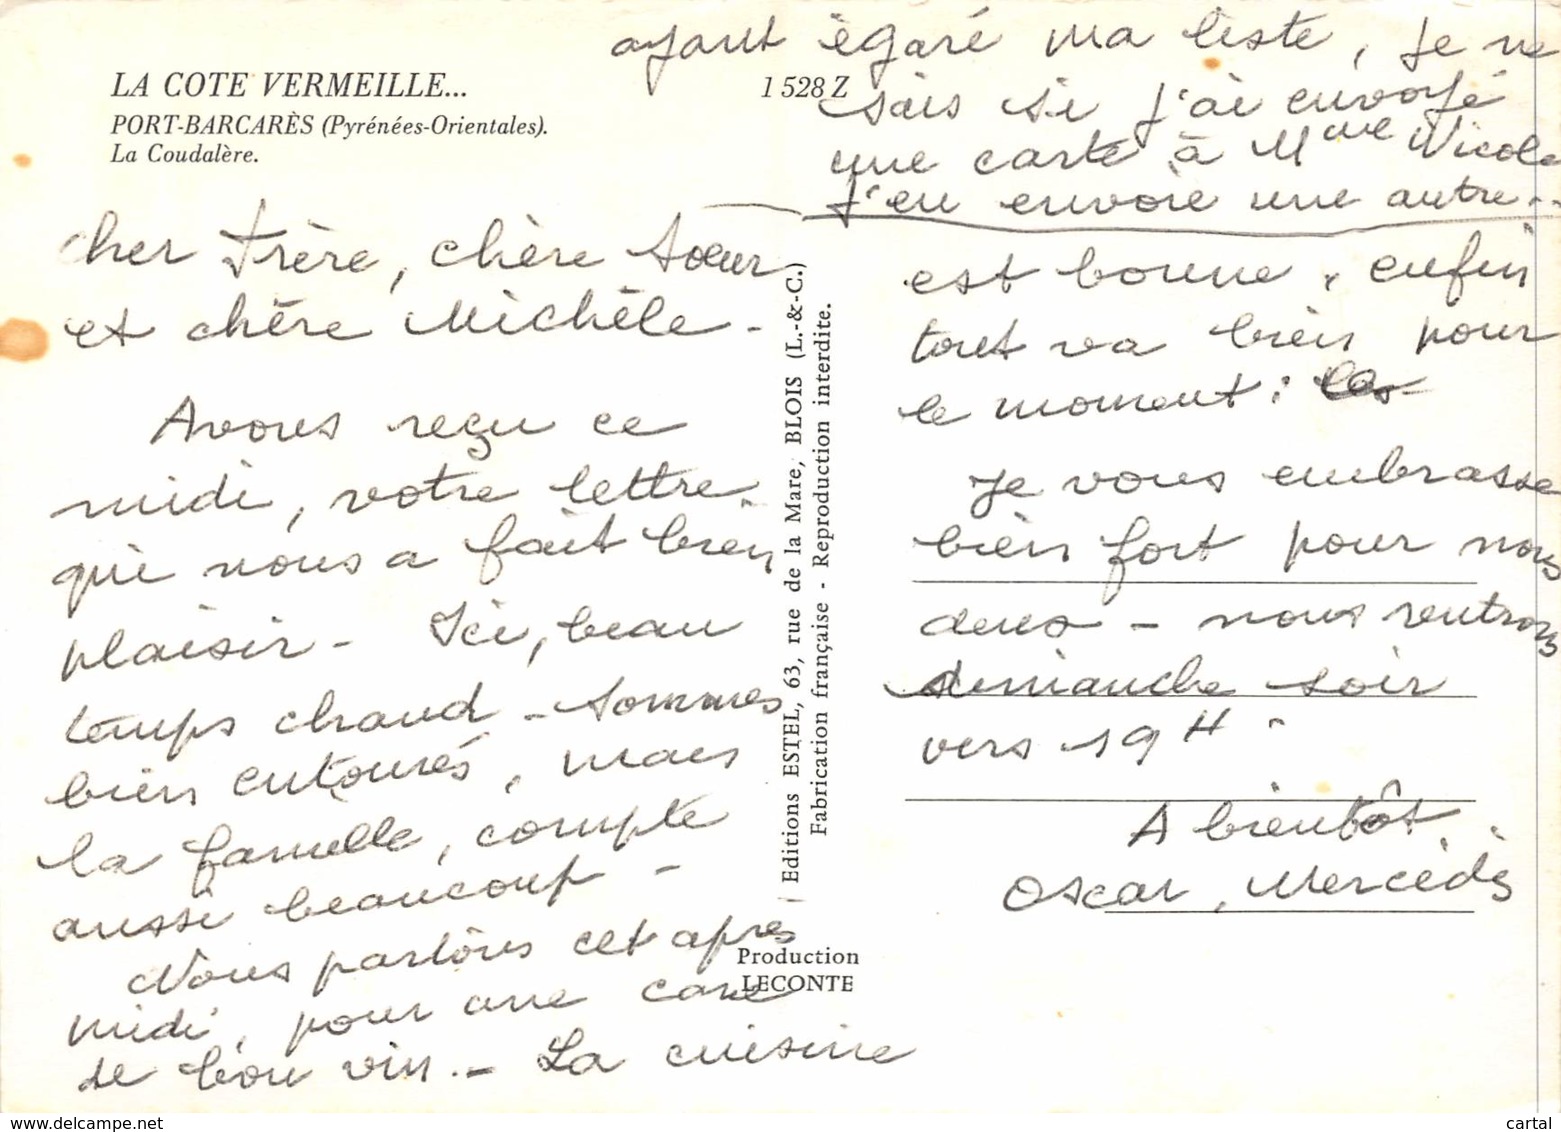 LA COTE VERMEILLE...
PORT-BARCARÈS (Pyrénées-Orientales).
La Coudalère.
1 528 Z
ayant égaré ma liste, je ne
sais si j'ai envoyé
une carte à Mme Nicole
J'en envoie une autre..
cher frère, chère soeur
et chère Michèle -
Avons reçu ce
midi, votre lettre
qui nous a fait bien
plaisir - Ici, beau
temps chaud - sommes
bien entourés, mais
la famille, compte
aussi beaucoup -
Nous partons cet après
midi, pour une cave
de bon vin. - La cuisine
est bonne, enfin
tout va bien pour
le moment :
Je vous embrasse
bien fort pour nous
deux - nous rentrons
dimanche soir
vers 19 H -
A bientôt.
Oscar, Mercédès
Editions ESTEL, 63, rue de la Mare, BLOIS (L.-&-C.)
Fabrication française - Reproduction interdite.
Production
LECONTE
www.delcampe.net
cartal